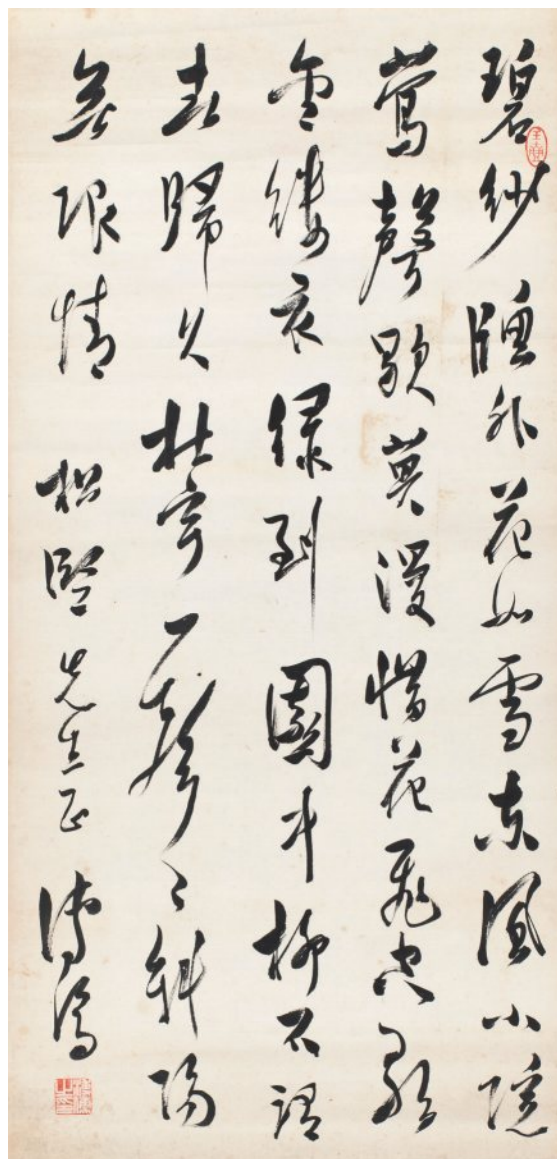 碧紗牕外花如雪東風小院
鶯聲歇莫漫惜花飛空歌
金縷衣綠到園中柳不謂
春歸久杜宇一聲〻斜陽
無限情 松堅先生正 溥